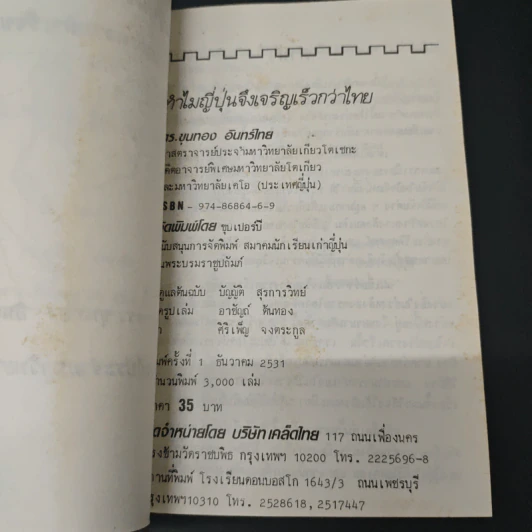 ทำไมญี่ปุ่นจึงเจริญเร็วกว่าไทย
ดร.ขุนทอง อินทร์ไทย
ศาสตราจารย์ประจำมหาวิทยาลัยเกียวโตเซกะ
อดีตอาจารย์พิเศษมหาวิทยาลัยโตเกียว
และมหาวิทยาลัยเคโอ (ประเทศญี่ปุ่น)
ISBN - 974-86864-6-9
จัดพิมพ์โดย ซุมเปอร์ปี้
สนับสนุนการจัดพิมพ์ สมาคมนักเรียนเก่าญี่ปุ่น
ในพระบรมราชูปถัมภ์
ดูแลต้นฉบับ บัญญัติ สุรการวิทย์
รูปเล่ม อาชัญถ์ ต้นทอง
ศิริเพ็ญ จงตระกูล
พิมพ์ครั้งที่ 1 ธันวาคม 2531
จำนวนพิมพ์ 3,000 เล่ม
ราคา 35 บาท
จัดจำหน่ายโดย บริษัทเคล็ดไทย 117 ถนนเฟื่องนคร
ตรงข้ามวัดราชบพิธ กรุงเทพฯ 10200 โทร. 2225696-8
สถานที่พิมพ์ โรงเรียนดอนบอสโก 1643/3 ถนนเพชรบุรี
กรุงเทพฯ10310 โทร. 2528618,2517447